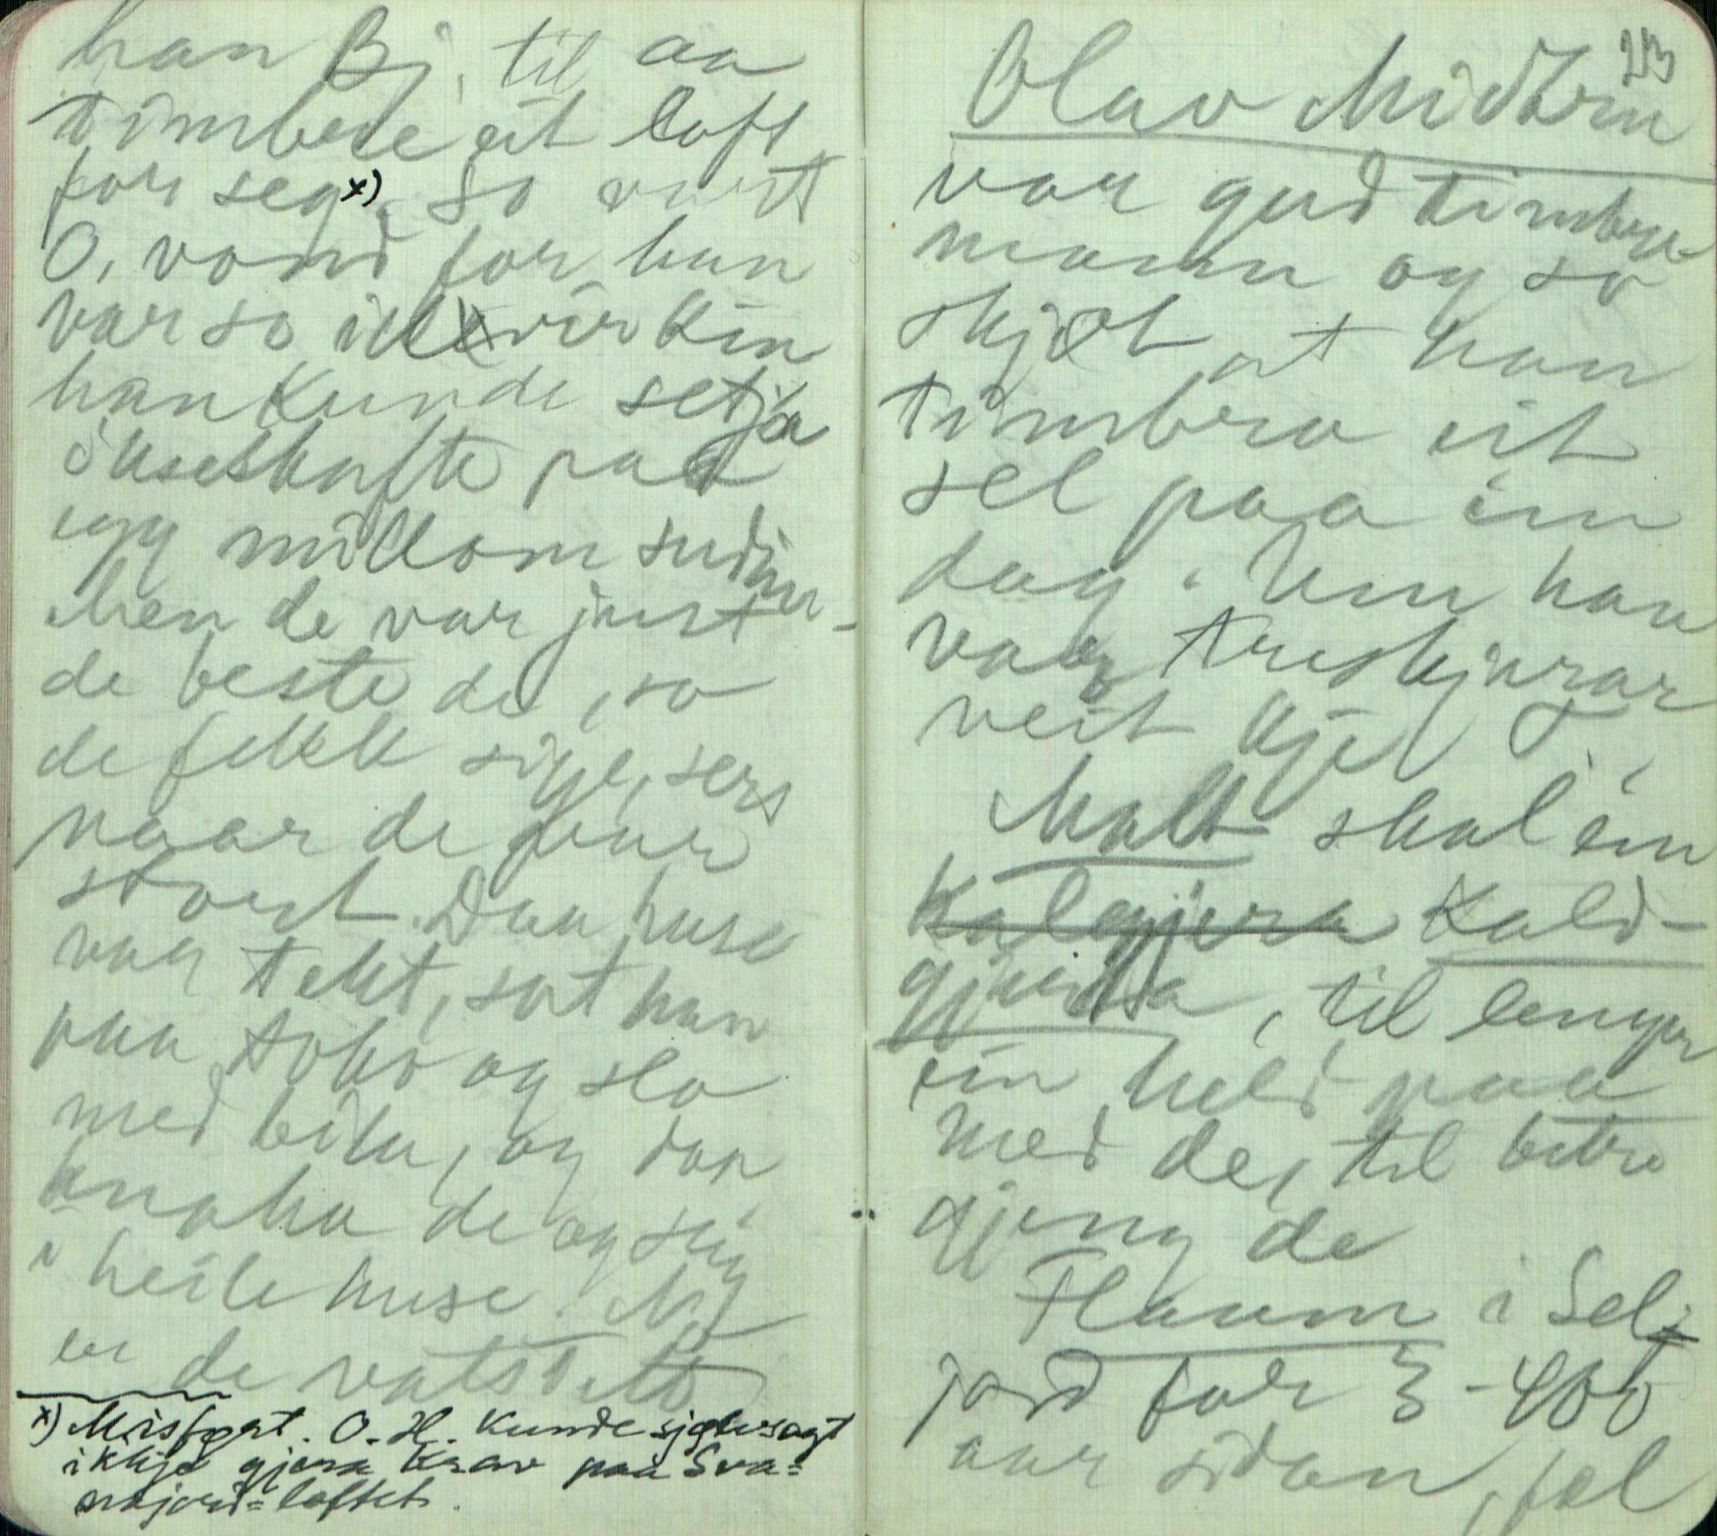 han Bj. til aa
timbere eit loft
for seg x). So vart
O. vond for han
var so illvirkin
han kunde setja
økseskafte paa
egg millom sudin
Men de var just
de beste de, so
de fekk sige, sers
naar de
stort. Daa huse
var tekt, sat han
paa
og slo
med bila, og daa
knaka de og seig
i heile huse. No
er de
x) Misfgat. O. H. kunde sjølvsagt
ikkje gjera krav paa Sva-
nejord-loftet.
213
Olav Midtbøen
var gud timbre-
mann og so
skjøt at han
timbra eit
sel paa ein
dag. Um han
var treskjerar
veit kje T.
Malt skal ein
kalgjera kald-
gjera, til lenger
ein held paa
med de, til betre
gjeng de
Flaum i Sel-
jord for 3-400
aar sidan, fol